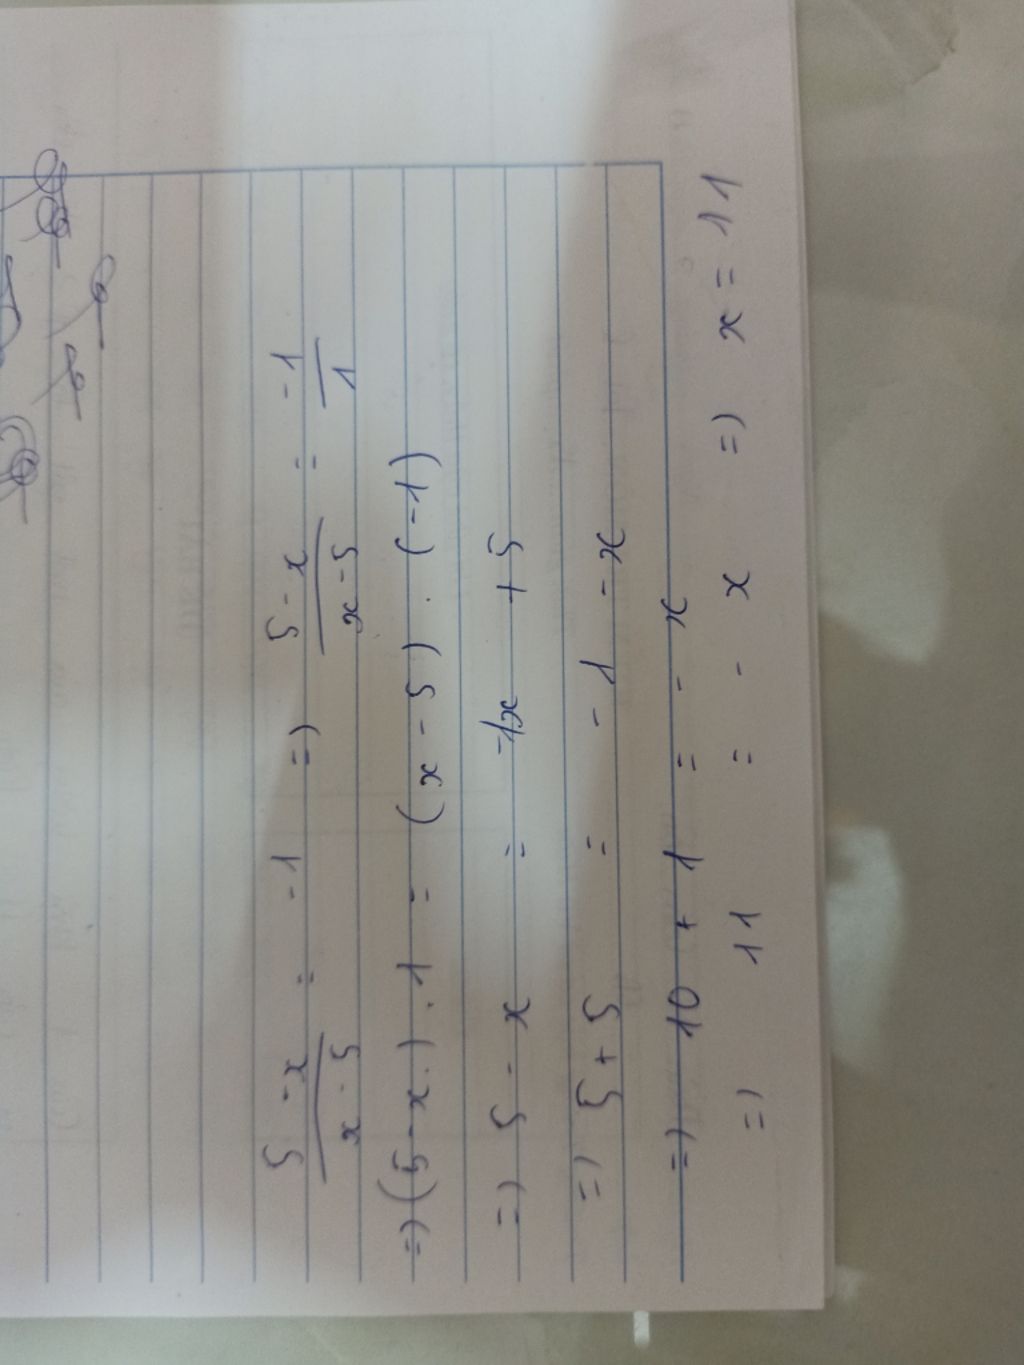 5 - x / x - 5 = -1 => 5 - x / x - 5 = -1 / 1
=> (5 - x.) . 1 = (x - 5) . (-1)
=> 5 - x = -1x + 5
=> 5 + 5 = - 1 - x
=> 10 + 1 = - x
=> 11 = - x => x = 11